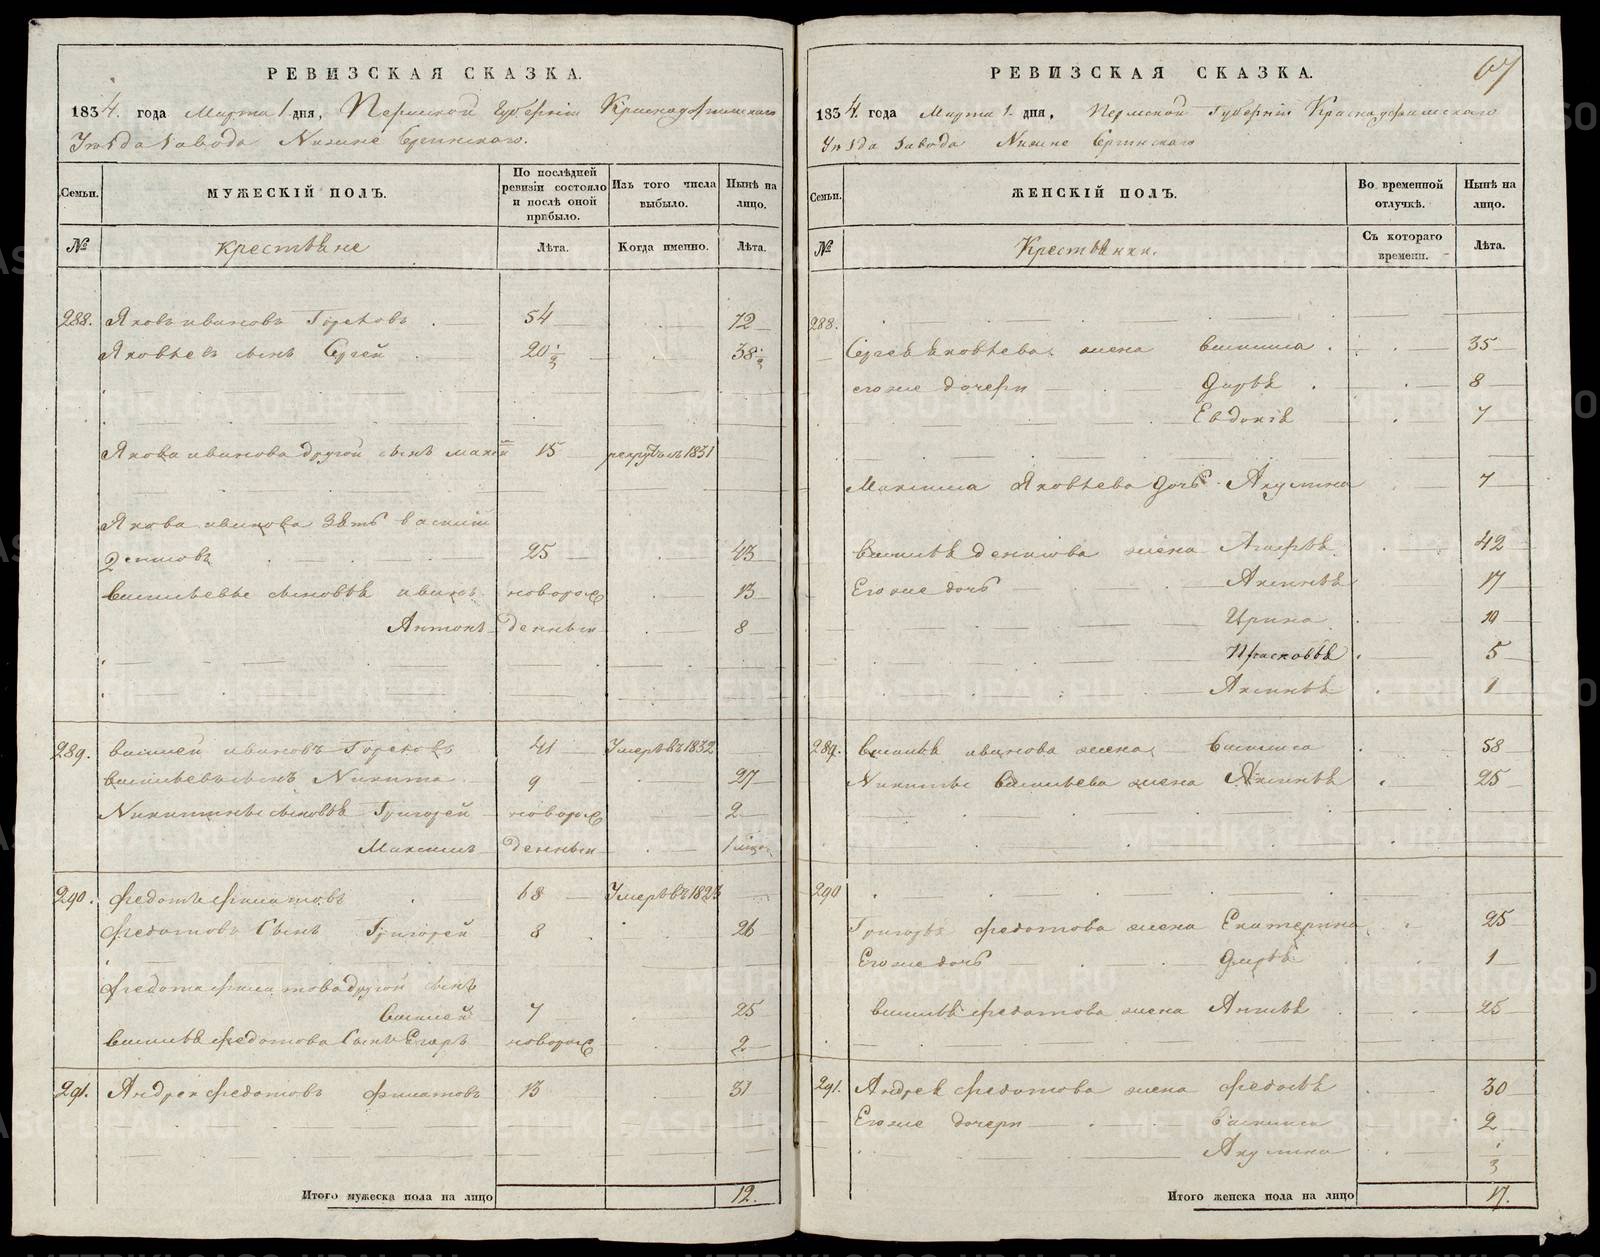 РЕВИЗСКАЯ СКАЗКА.
1834. года Марта 1. дня, Пермской Губерніи Красноуфимскаго
Уѣзда Завода Нижне Сергинскаго.
Семьи.
МУЖЕСКІЙ ПОЛЪ.
По послѣдней ревизіи состояло и послѣ оной прибыло.
Изъ того числа выбыло.
Нынѣ на лицо.
№ Крестьяне Лѣта. Когда именно. Лѣта.
288. Яковъ Ивановъ Гороховъ 54 72
Яковлевъ сынъ Сергей 20 1/3 38 1/3
Якова Иванова другой сынъ 15 1831
Якова Иванова зять Василій
Денисовъ 25 43
Васильевы сыновья Иванъ новорож 13
Антонъ денныи 8
289. Василей Ивановъ Гороховъ 41 Умеръ въ 1832
Васильевъ сынъ Никита 9 27
Никитины сыновья Григорей новорож 2
Максимъ денныи 1
290. Федотъ Филатовъ 68 Умеръ въ
Федотовъ Сынъ Григорей 8 26
Федота Филатова другой сынъ
Василей 7 25
Василья Федотова Сынъ Егоръ новорож 2
291. Андрей Федотовъ Филатовъ 13 31
Итого мужеска пола на лицо 12.
РЕВИЗСКАЯ СКАЗКА. 67
1834. года Марта 1. дня, Пермской Губерніи Красноуфимскаго
Уѣзда Завода Нижне Сергинскаго
Семьи.
ЖЕНСКІЙ ПОЛЪ.
Во временной отлучкѣ.
Нынѣ на лицо.
№ Крестьянки. Съ котораго времени. Лѣта.
288.
Сергея Яковлева жена Василиса 35
его же дочери Дарья 8
Евдокія 7
Максима Яковлева дочь Акулина 7
Василья Денисова жена Агафья 42
Его же дочь Аксинья 17
Ирина 10
Прасковья 5
Аксинья 1
289. Василья Иванова жена Василиса 58
Никиты Васильева жена Аксинья 25
290
Григорья Федотова жена Екатерина 25
Его же дочь Дарья 1
Василья Федотова жена Анисья 25
291. Андрея Федотова жена Федосья 30
Его же дочери Василиса 2
Акулина 1/3
Итого женска пола на лицо 17.
METRIKI.GASO-URAL.RU